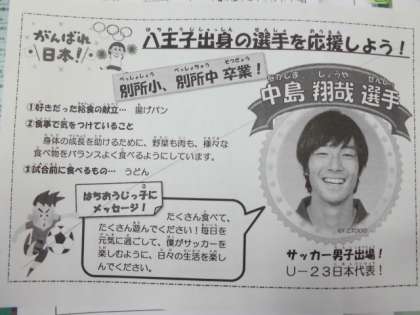 がんばれ
日本!
八王子出身の選手を応援しよう!
べっしょしょう べっしょちゅう そつぎょう
別所小、別所中 卒業!
なかじま しょうや せんしゅ
中島 翔哉 選手
①好きだった給食の献立… 揚げパン
②食事で気をつけていること
身体の成長を助けるために、野菜も肉も、様々な
食べ物をバランスよく食べるようにしています。
③試合前に食べるもの… うどん
はちおうじっ子に
メッセージ!
たくさん食べて、
たくさん遊んでください!毎日を
元気に過ごして、僕がサッカーを
楽しむように、日々の生活を楽し
んでください。
サッカー男子出場!
U-23日本代表!